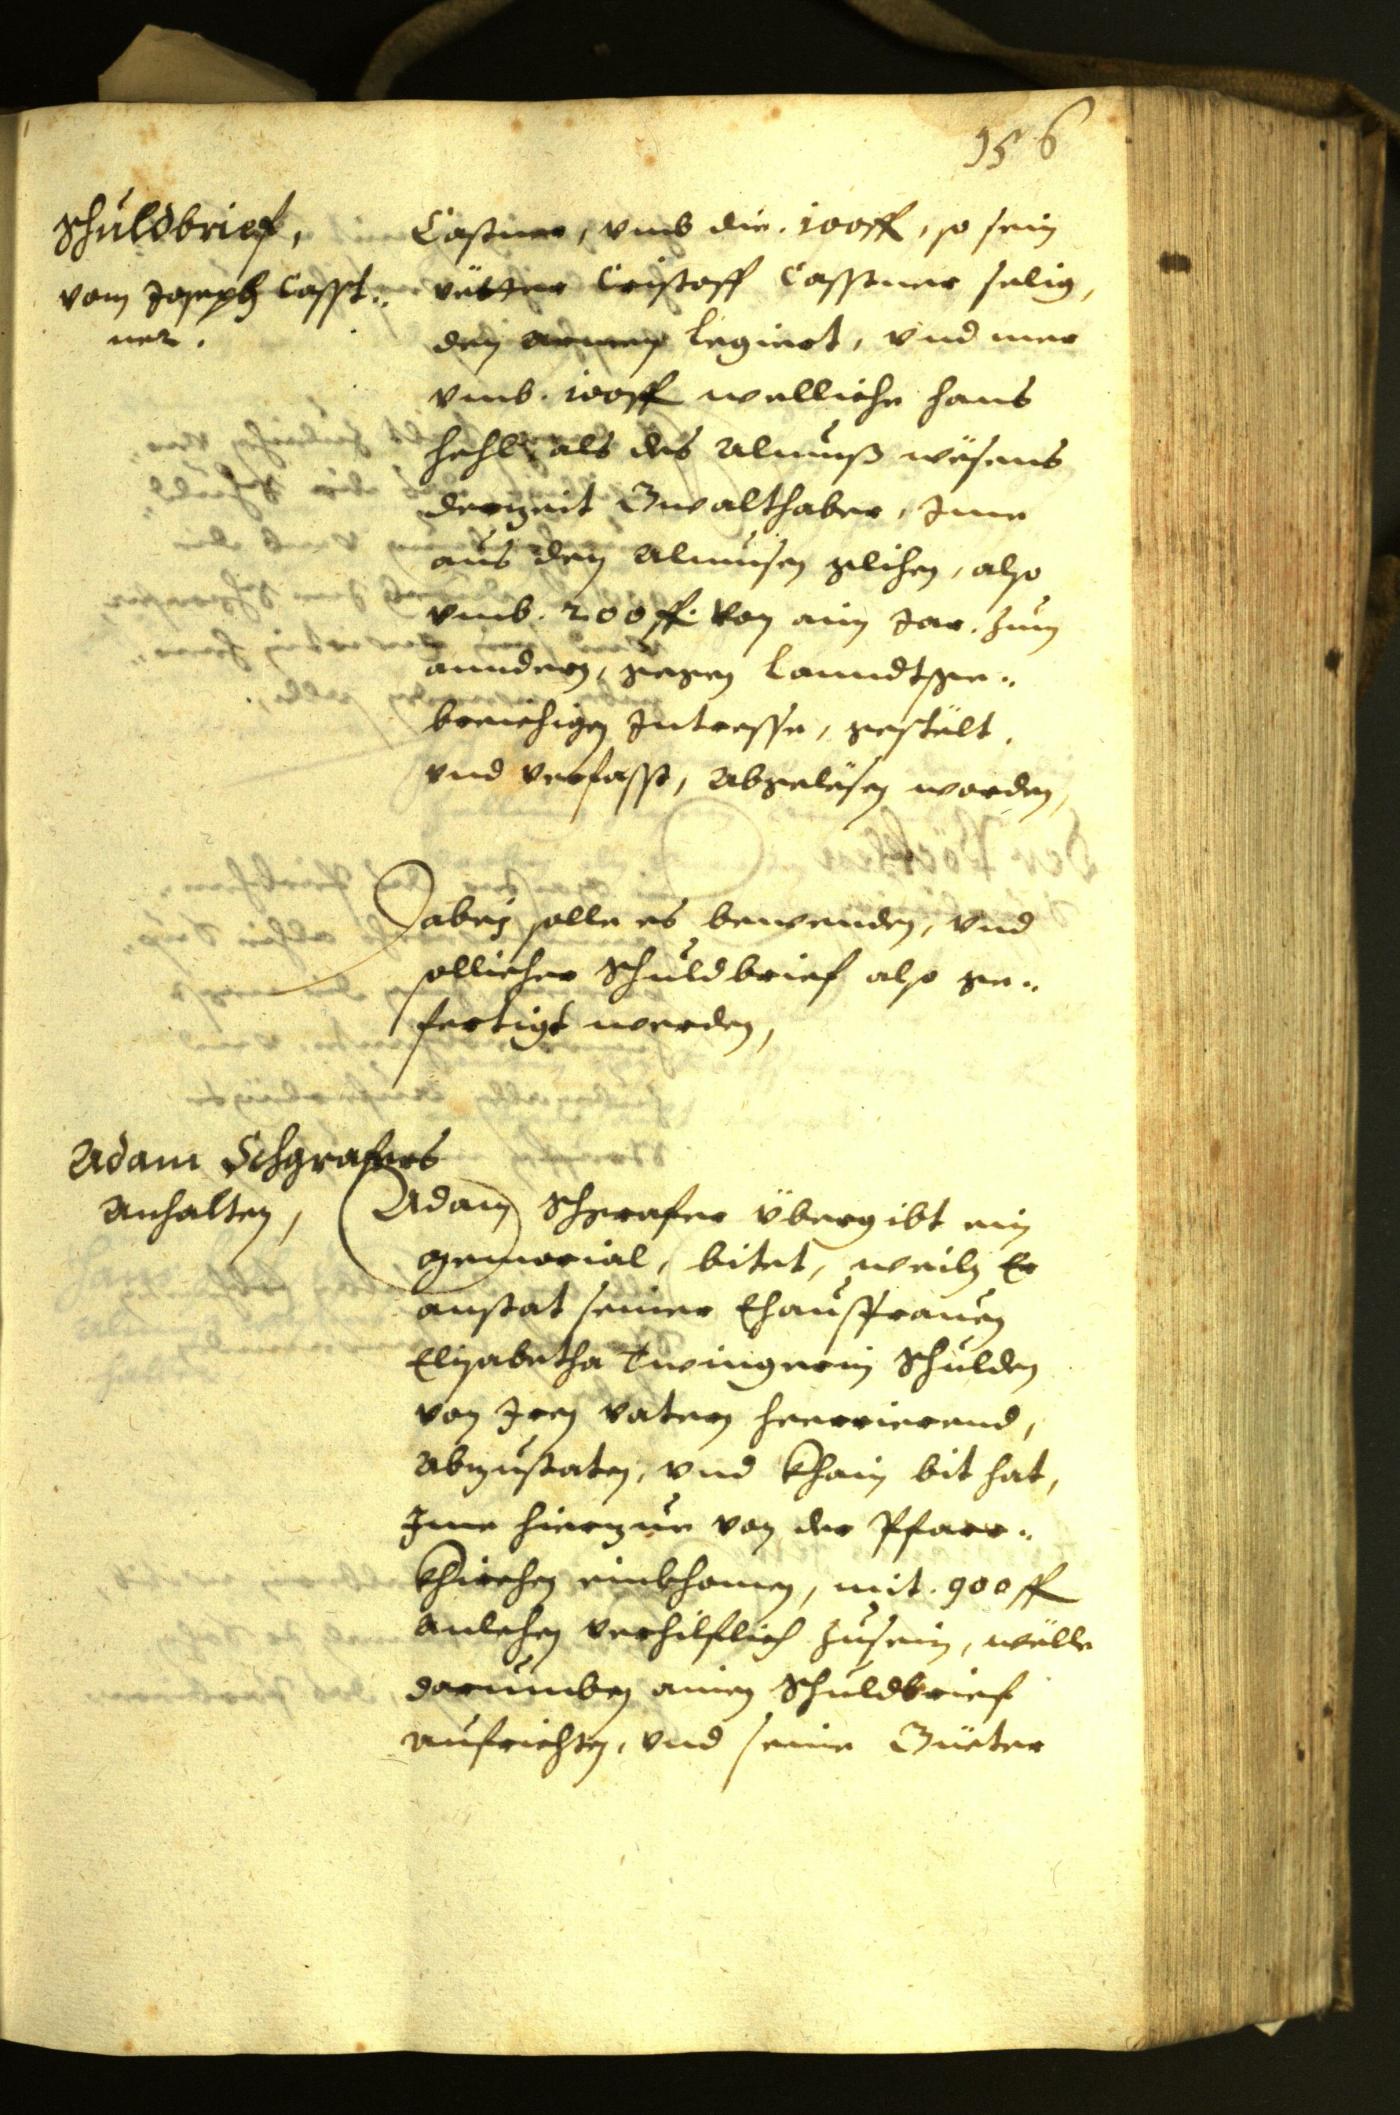 156
Schuldbrief,
vom Joseph Casst„
ner.
Casstner, vmb die . 100 ff, so sein
vetter Cristoff Casstner selig,
den armen Legiert, vnd mer
vmb . 100 ff welliche Hans
Hehl, als des Almuß wesens
derzeit Gwalthaber, Ime
aus den Almusen glihen, also
vmb . 200 ff. von ain Jar . zum
anndern, gegen Lanndtge„
breichigen Intresse, gestält,
vnd verfasst, Abgelesen worden,
Dabej solle es bewenden, vnd
sollicher Schuldbrief also ge„
fertigt werden,
Adam Schgrafers
Anhalten,
Adam Schgrafer übergibt ein
Memorial, bitet, weiln Er
anstat seiner Ehausfrauen
Elisabetha Twingerin Schulden
von Iren Vatern herrierend,
Abzustaten, vnd Khain bit hat,
Ime hierzue von der Pfarr„
Khirchen einkhomen, mit . 900 ff
Anlehen verhilflich zusein, wölle
darumben ainen Schuldbrief
aufrichten, vnd seine Güeter